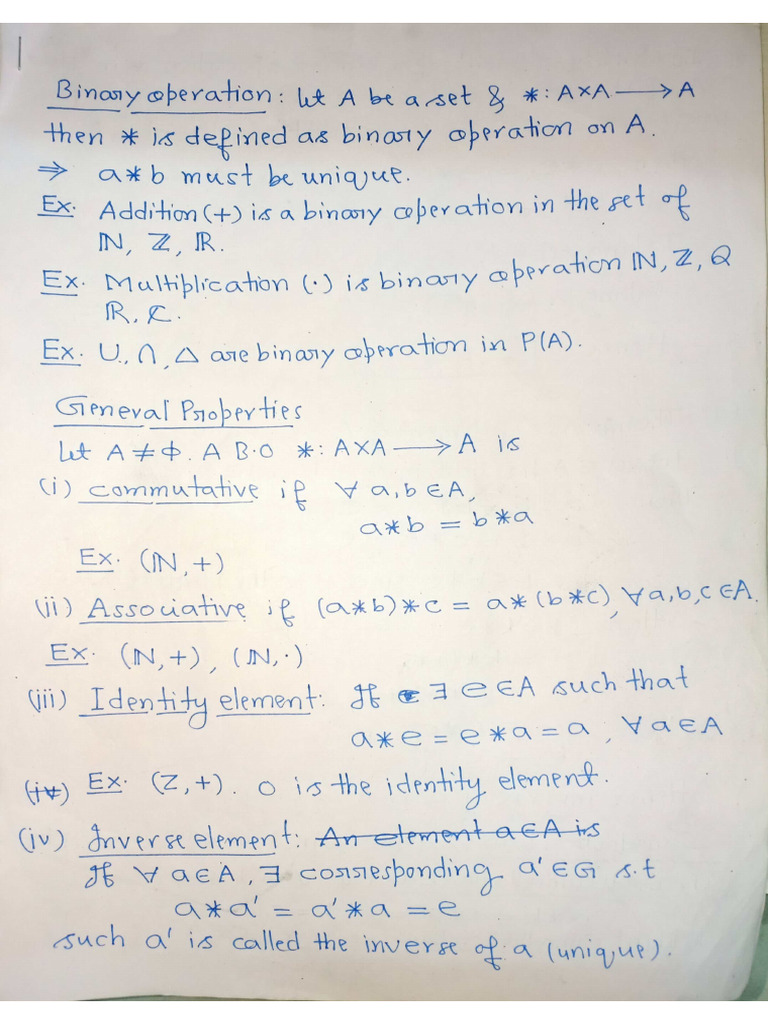 Binary operation: let A be a set & *: A×A ⟶ A
then * is defined as binary operation on A.
⇒ a*b must be unique.
Ex. Addition (+) is a binary operation in the set of
ℕ, ℤ, ℝ.
Ex. Multiplication (·) is binary operation ℕ, ℤ, Q
ℝ, ℂ.
Ex. U, ∩, △ are binary operation in P(A).
General Properties
Let A ≠ Φ. A B.O *: A×A ⟶ A is
(i) commutative if ∀ a, b ∈ A,
a*b = b*a
Ex. (ℕ, +)
(ii) Associative if (a*b)*c = a*(b*c), ∀ a, b, c ∈ A.
Ex. (ℕ, +), (ℕ, ·)
(iii) Identity element: If ∃ e ∈ A such that
a*e = e*a = a, ∀ a ∈ A
(iv) Ex. (Z, +). 0 is the identity element.
(iv) Inverse element: An element a ∈ A is
If ∀ a ∈ A, ∃ corresponding a' ∈ G s.t
a*a' = a'*a = e
such a' is called the inverse of a (unique).